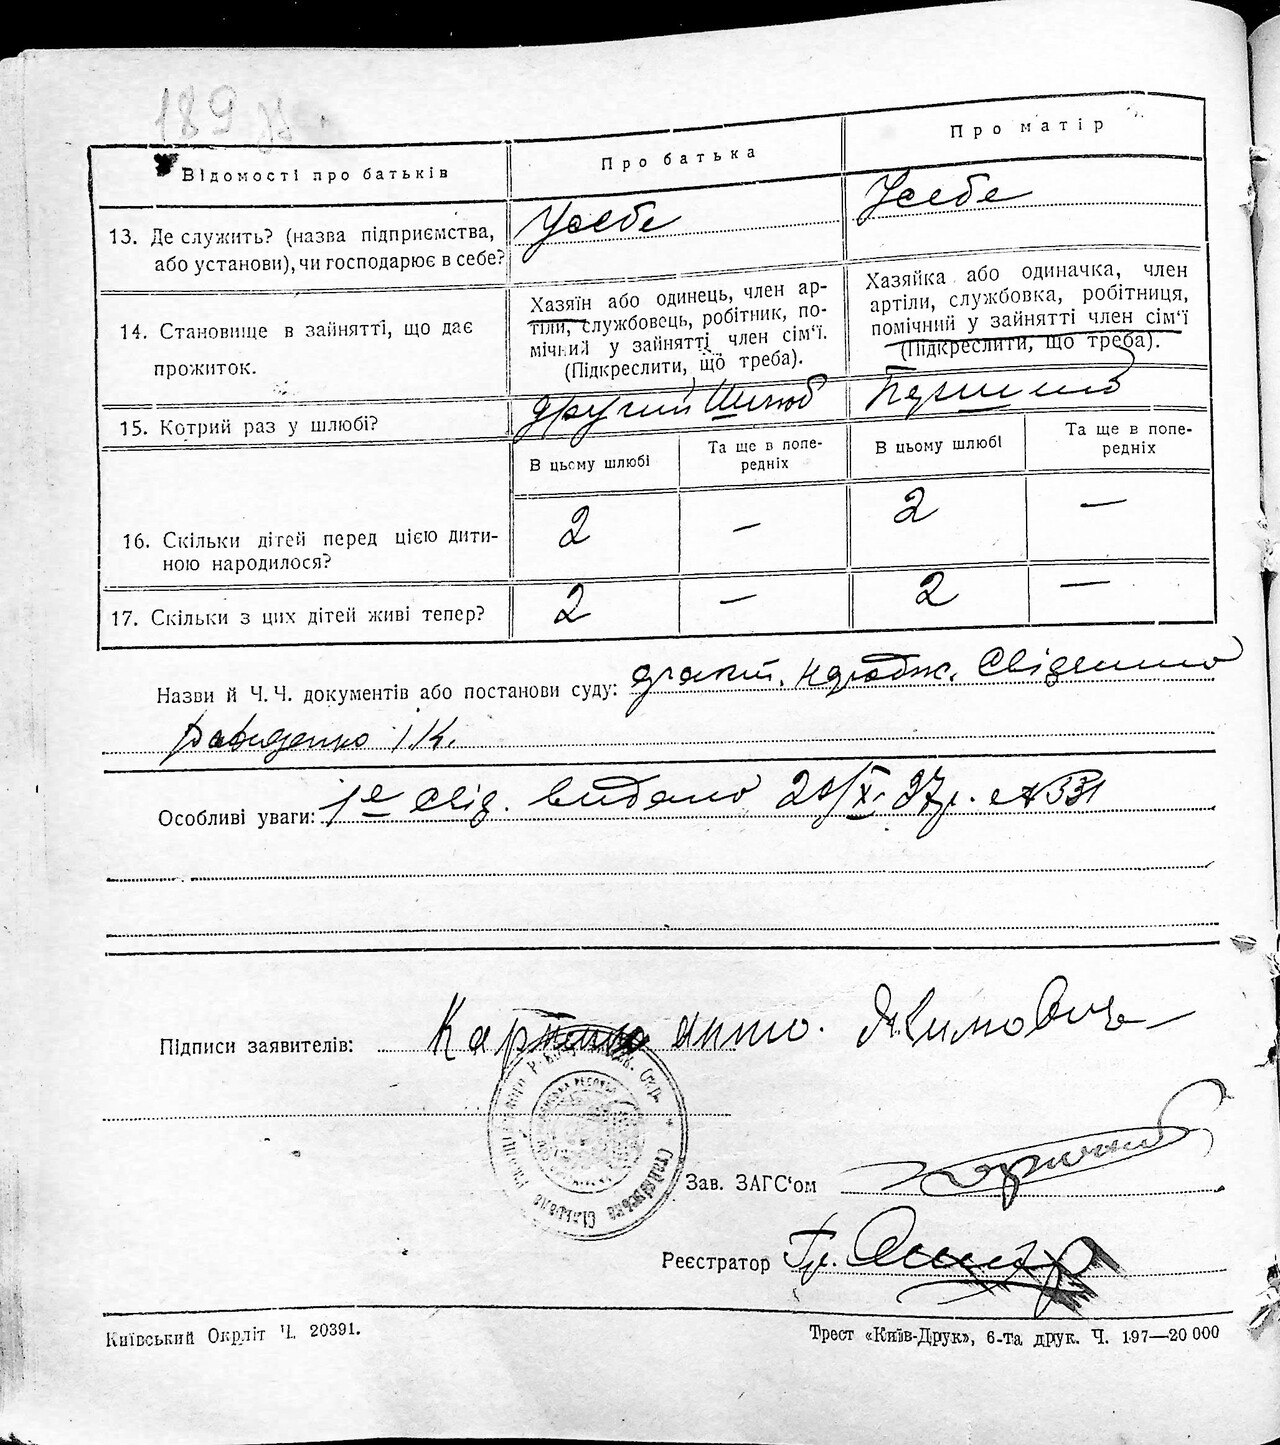 189
Відомості про батьків
Про батька
Про матір
13. Де служить? (назва підприємства,
або установи), чи господарює в себе?
Усебе
Усебе
14. Становище в зайнятті, що дає
прожиток.
Хазяїн або одинець, член ар-
тіли, службовець, робітник, по-
мічний у зайнятті член сім'ї.
(Підкреслити, що треба).
Хазяйка або одиначка, член
артіли, службовка, робітниця,
помічний у зайнятті член сім'ї
(Підкреслити, що треба).
15. Котрий раз у шлюбі?
другий шлюб
Першим
В цьому шлюбі
Та ще в попе-
редніх
В цьому шлюбі
Та ще в попе-
редніх
16. Скільки дітей перед цією дити-
ною народилося?
2
—
2
—
17. Скільки з цих дітей живі тепер?
2
—
2
—
Назви й Ч.Ч. документів або постанови суду:
Особливі уваги: 1е свід. видано 20/X. 27р. №331
Підписи заявителів: Якимович
Зав. ЗАГС'ом
Реєстратор
Київський Окрліт Ч. 20391.
Трест «Київ-Друк», 6-та друк. Ч. 197—20 000